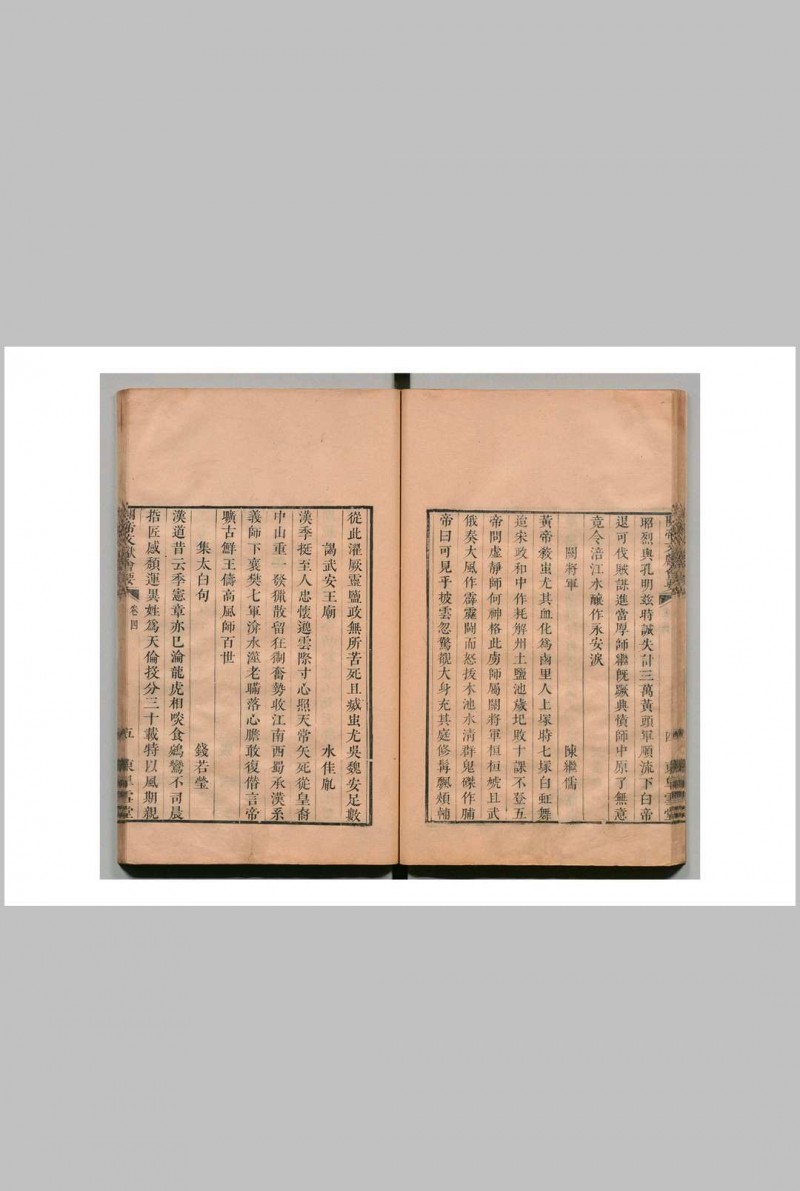 昭烈與孔明玆時誠失計三萬黃頭軍順流下白帝
退可伐賊謀進當厚師繼旣蹶典情師中原了無意
竟令涪江水釀作永安淚
關將軍 陳繼儒
黃帝殺蚩尤其血化爲鹵里人上塚時七塚白虹舞
迨宋政和中作耗解州土鹽池歲圯敗十課不登五
帝問虛靜師何神格此虜師屬關將軍桓桓虓且武
俄奏大風作霹靂鬭而怒拔木池水清群鬼磔作脯
帝曰可見乎披雲忽驚覩大身充其庭修髯飄頰輔
關帝文獻會要 卷四 四 東臯雪堂
從此濯厥靈鹽政無所苦死且馘蚩尤吳魏安足數
謁武安王廟 水佳胤
漢季挺至人忠懷邈雲際寸心照天常矢死從皇裔
中山重一發獵散留往制奮勢收江南西蜀承漢系
義師下襄樊七軍渰水澨老瞞落心膽敢復僭言帝
曠古鮮王儔高風師百世
集太白句 錢若瑩
漢道昔云季憲章亦已淪龍虎相啖食鷄鸞不司晨
指匠感頹運異姓爲天倫投分三十載特以風期親
關帝文獻會要 卷四 五 東臯雪堂